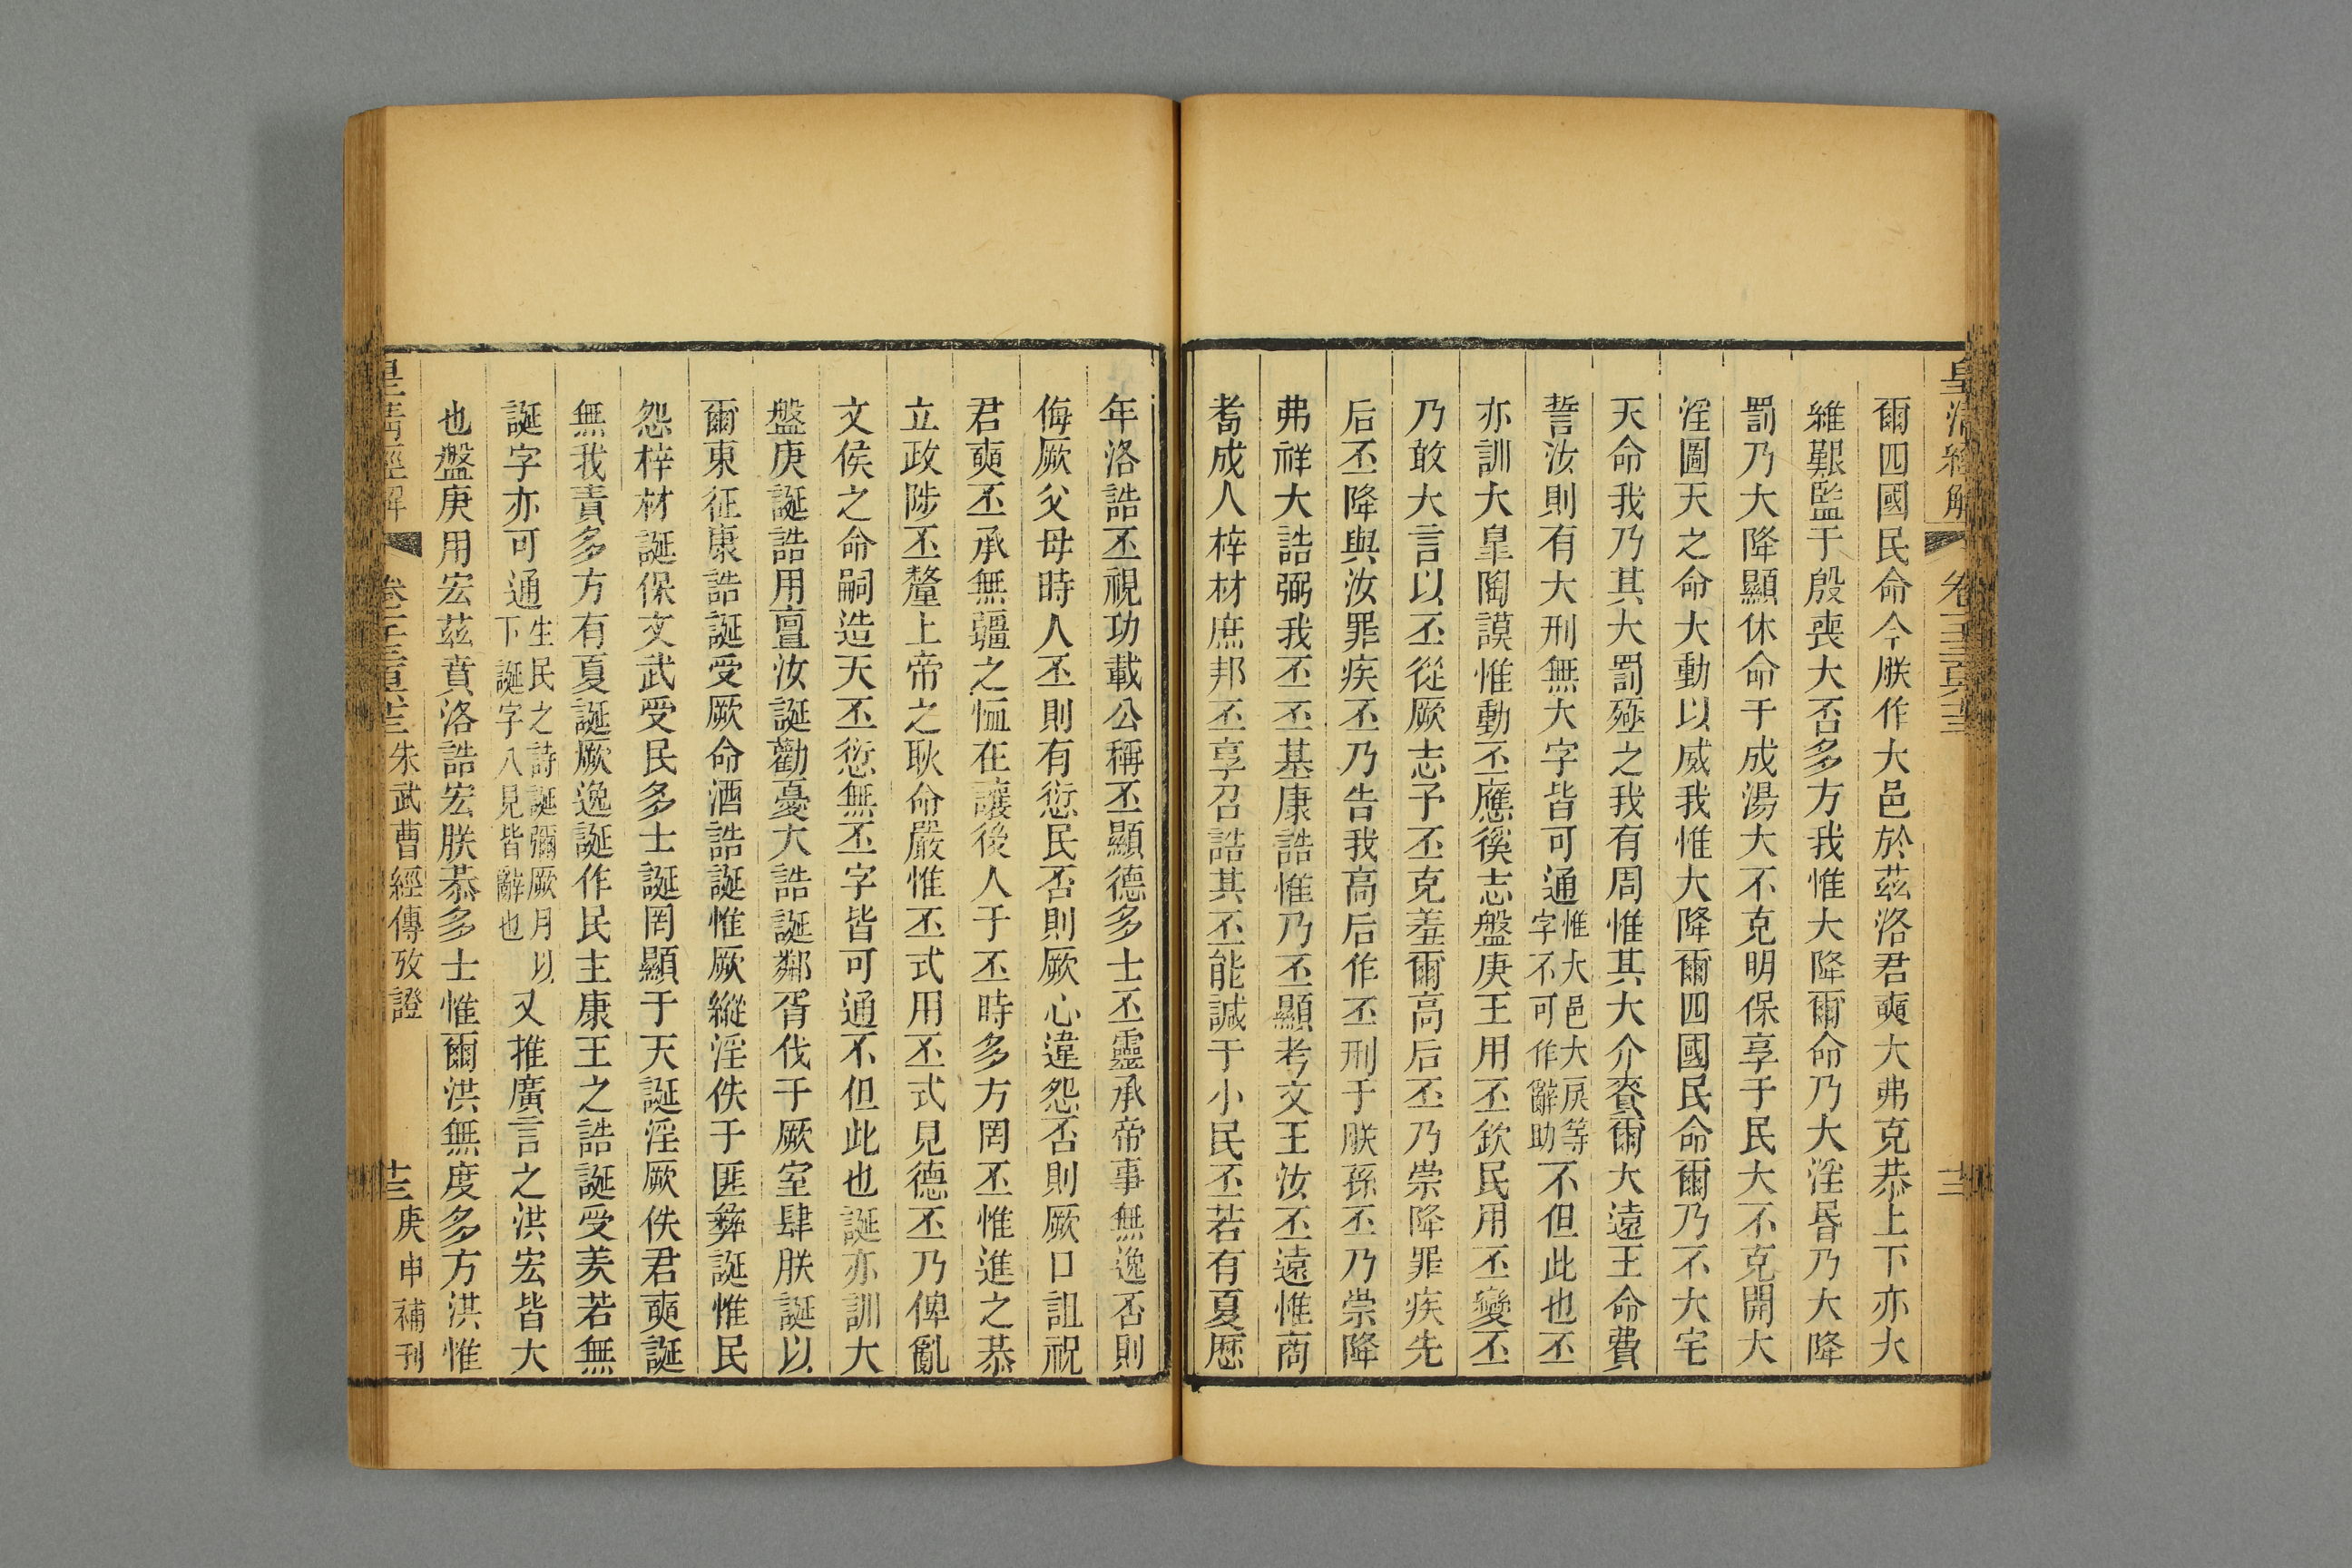 爾四國民命今朕作大邑於茲洛君奭大弗克恭上下亦大
維艱監于殷喪大否多方我惟大降爾命乃大淫昏乃大降
罰乃大降顯休命于成湯大不克明保享于民大不克開大
淫圖天之命大動以威我惟大降爾四國民命爾乃不大宅
天命我乃其大罰殛之我有周惟其大介賚爾大遠王命費
誓汝則有大刑無大字皆可通惟大邑大戾等字不可作辭助不但此也丕
亦訓大皐陶謨惟動丕應徯志盤庚王用丕欽民用丕變丕
乃敢大言以丕從厥志予丕克羞爾高后丕乃崇降罪疾先
后丕降與汝罪疾丕乃告我高后作丕刑于朕孫丕乃崇降
弗祥大誥弼我丕丕基康誥惟乃丕顯考文王汝丕遠惟商
耇成人梓材庶邦丕享召誥其丕能諴于小民丕若有夏歷
年洛誥丕視功載公稱丕顯德多士丕靈承帝事無逸否則
侮厥父母時人丕則有愆民否則厥心違怨否則厥口詛祝
君奭丕承無疆之恤在讓後人于丕時多方罔丕惟進之恭
立政陟丕釐上帝之耿命嚴惟丕式用丕式見德丕乃俾亂
文侯之命嗣造天丕愆無丕字皆可通不但此也誕亦訓大
盤庚誕誥用亶汝誕勸憂大誥誕鄰胥伐于厥室肆朕誕以
爾東征康誥誕受厥命酒誥誕惟厥縱淫佚于匪彝誕惟民
怨梓材誕保文武受民多士誕罔顯于天誕淫厥佚君奭誕
無我責多方有夏誕厥逸誕作民主康王之誥誕受羑若無
誕字亦可通生民之詩誕彌厥月以下誕字八見皆辭也又推廣言之洪宏皆大
也盤庚用宏茲賁洛誥宏朕恭多士惟爾洪無度多方洪惟
皇清經解 朱武曹經傳攷證 十三 庚申補刊